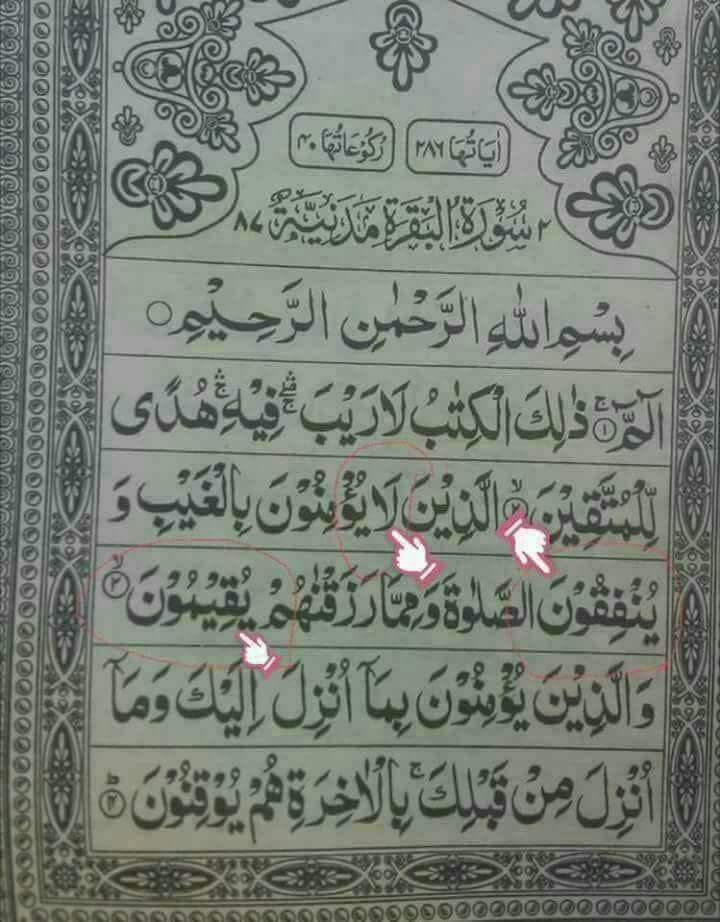 اٰيَاتُهَا ٢٨٦ رُكُوْعَاتُهَا ٤٠
٢ سُوْرَةُ الْبَقَرَةِ مَدَنِيَّةٌ ٨٧
بِسْمِ اللهِ الرَّحْمٰنِ الرَّحِيْمِ ○
الٓمّٓ ۚ ۝١ ذٰلِكَ الْكِتٰبُ لَا رَيْبَ ۛۚ فِيْهِ ۛۚ هُدًى
لِّلْمُتَّقِيْنَ ۙ ۝٢ الَّذِيْنَ لَا يُؤْمِنُوْنَ بِالْغَيْبِ وَ
يُنْفِقُوْنَ الصَّلٰوةَ وَمِمَّا رَزَقْنٰهُمْ يُقِيْمُوْنَ ۙ ۝٣
وَالَّذِيْنَ يُؤْمِنُوْنَ بِمَآ اُنْزِلَ اِلَيْكَ وَمَآ
اُنْزِلَ مِنْ قَبْلِكَ ۚ بِالْاٰخِرَةِ هُمْ يُوْقِنُوْنَ ؕ ۝٤